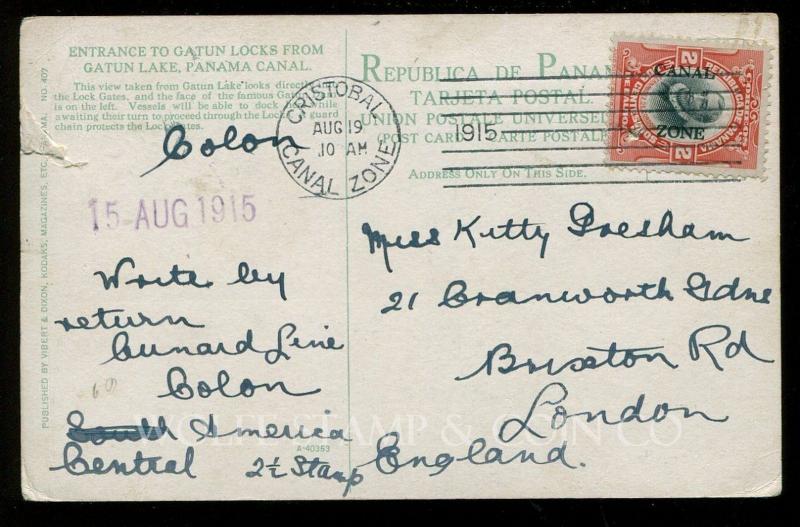 ENTRANCE TO GATUN LOCKS FROM
GATUN LAKE, PANAMA CANAL.
This view taken from Gatun Lake looks directly
the Lock Gates, and the face of the famous Gatun
is on the left. Vessels will be able to dock while
awaiting their turn to proceed through the Locks guard
chain protects the Lock gates.
Colon
15 AUG 1915
Write by
return
Cunard Line
Colon
South America
Central 2½ Stamp
PUBLISHED BY VIBERT & DIXON, KODAKS, MAGAZINES, ETC. NO. 407
A-40353
CRISTOBAL
AUG 19
10 AM
CANAL ZONE
1915
REPUBLICA DE PANAMA
TARJETA POSTAL
UNION POSTALE UNIVERSELLE
(POST CARD CARTE POSTALE)
ADDRESS ONLY ON THIS SIDE.
2 REPUBLICA DE PANAMA 2
CANAL
ZONE
2 2
Miss Kitty Gresham
21 Cranworth Gdns
Brixton Rd
London
England.
WOLFE STAMP & COIN CO